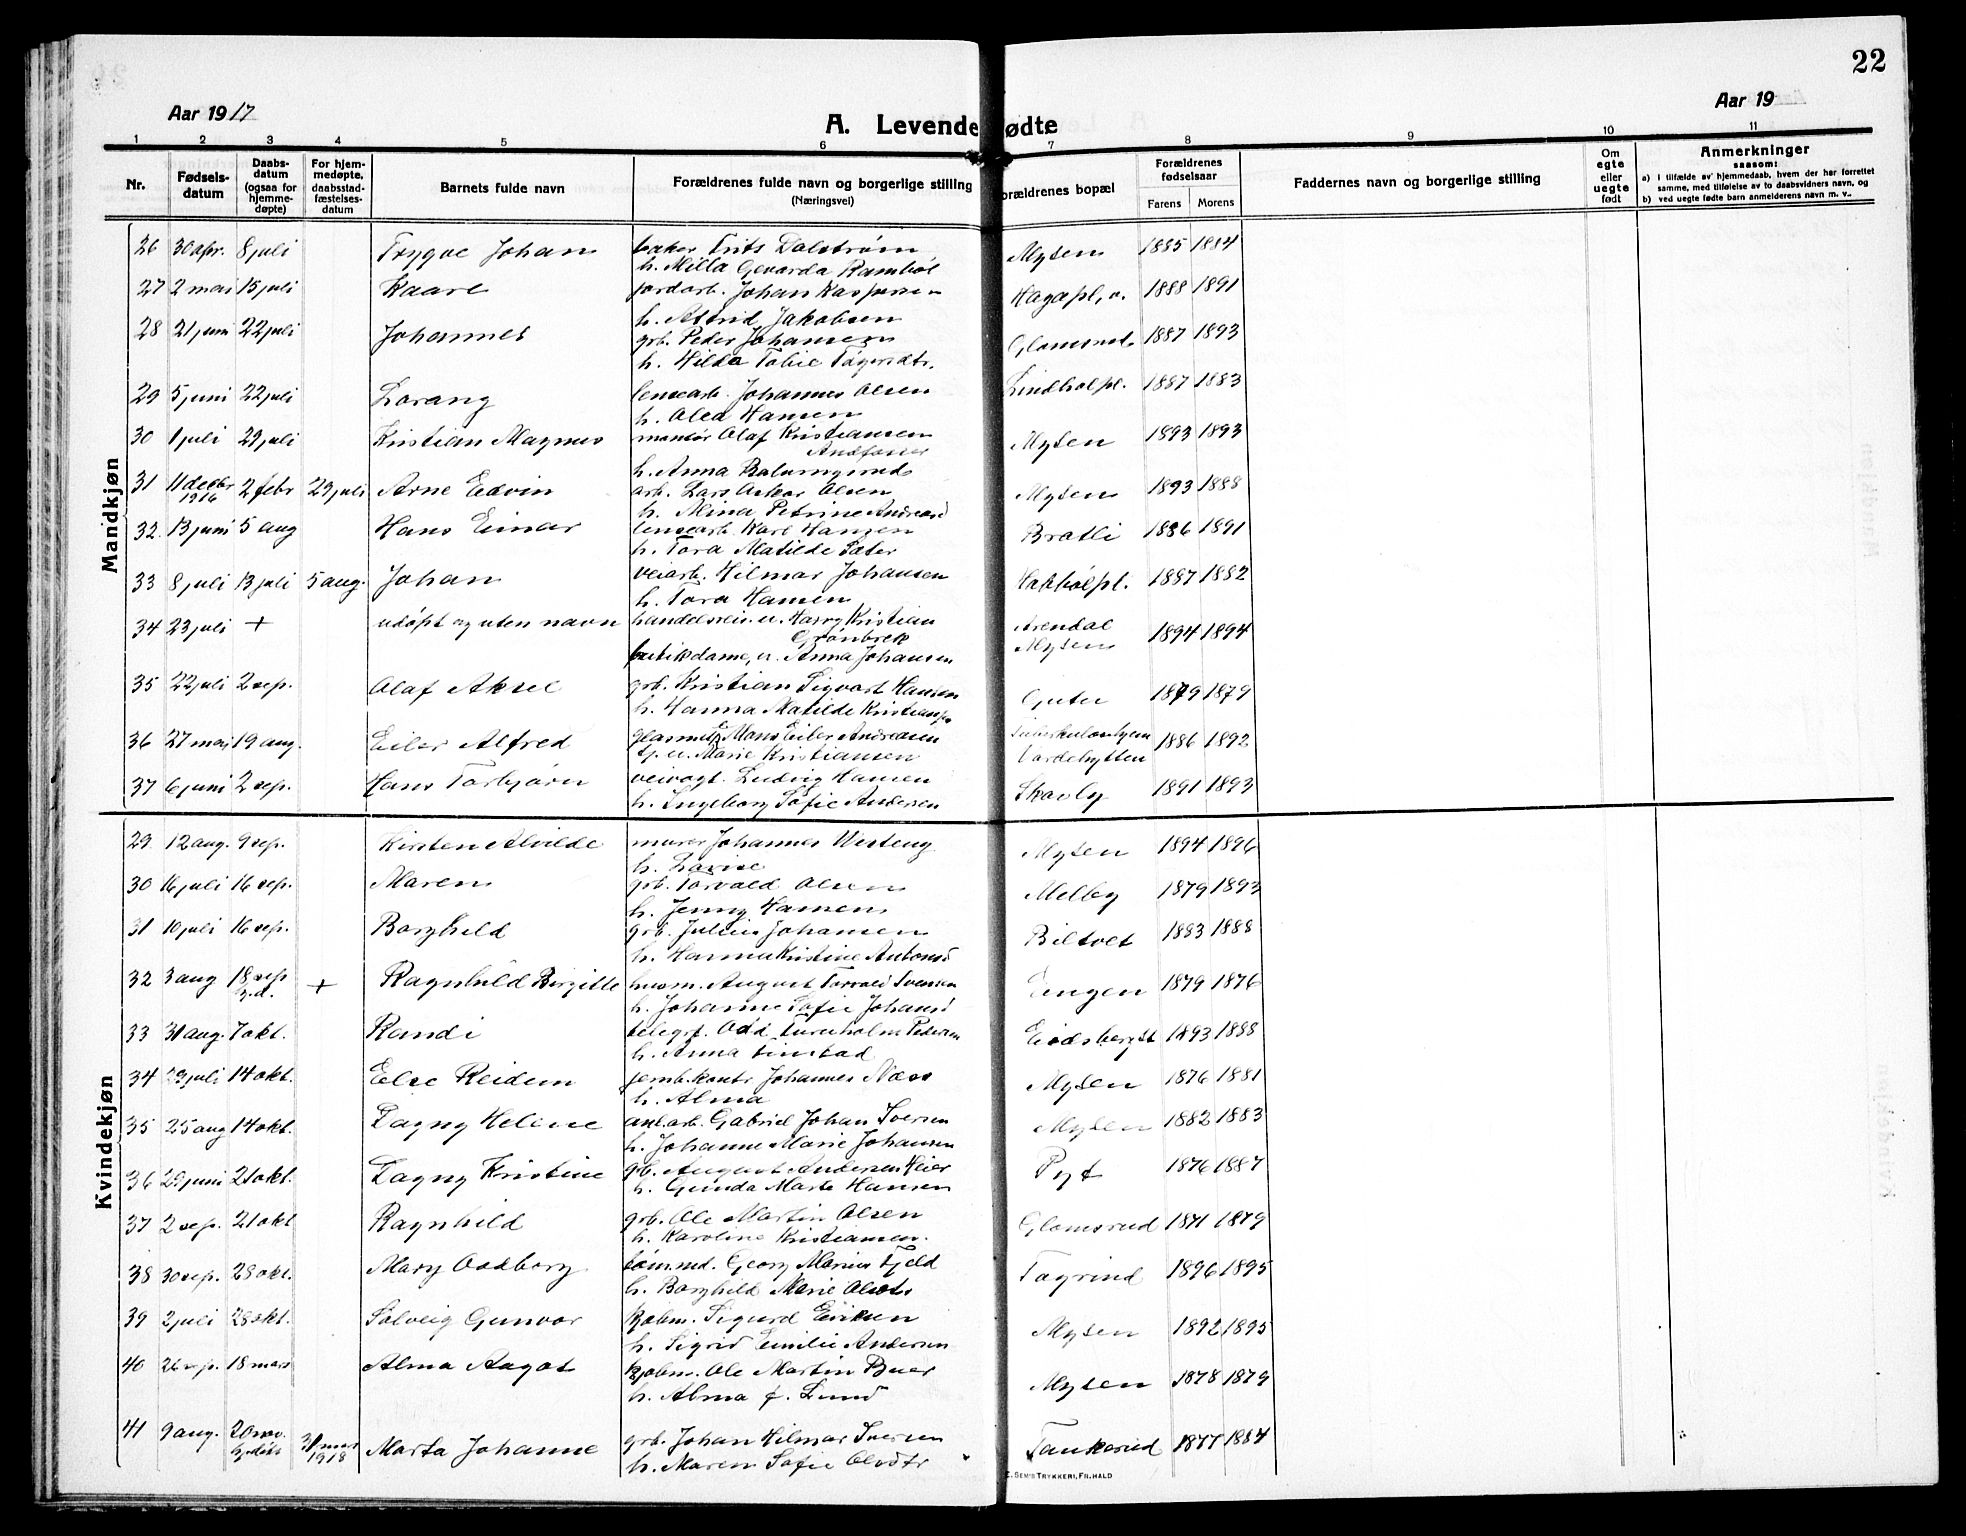 22
Aar 1917
Aar 19
A. Levende ødte
1 2 3 4 5 6 7 8 9 10 11
Nr.
Fødsels-
datum
Daabs-
datum
(ogsaa for
hjemme-
døpte)
For hjem-
medøpte,
daabsstad-
fæstelses-
datum
Barnets fulde navn
Forældrenes fulde navn og borgerlige stilling
(Næringsvei)
orældrenes bopæl
Forældrenes
fødselsaar
Farens Morens
Faddernes navn og borgerlig stilling
Om
egte
eller
uegte
født
Anmerkninger
saasom:
a) I tilfælde av hjemmedaab, hvem der har forrettet
samme, med tilføielse av to daabsvidners navn, og
b) ved uegte fødte barn anmelderens navn m. v.
Mandkjøn
26 30 apr. 8 juli Trygve Johan baker Frits Dalstrøm Mysen 1885 1884
h. Milla Gevarda Rambøl
27 2 mai 15 juli Kaare jordarb. Johan Kaspersen Hagapl, v. 1888 1891
h. Astrid Jakobsen
28 21 juni 22 juli Johannes grb. Peder Johansen 1887 1893
h. Hilda Tobie
29 5 juni 22 juli Lorang lensearb. Johannes Olsen Lindholpl. 1887 1883
h. Olea Hansen
30 1 juli 29 juli Kristian Magnus montør Olaf Kristiansen Mysen 1893 1893
h. Anna
31 11 decbr 1916 2 febr 29 juli Arne Edvin arb. Lars Oskar Olsen Mysen 1893 1888
h. Alina Petrine Andreasd
32. 13 juni 5 aug Hans Einar lensearb. Karl Hansen Bratli 1886 1891
h. Tora Matilde Sæter
33 8 juli 13 juli 5 aug. Johan veiarb. Hilmar Johansen Hakkbølpl. 1887 1882
h. Tora Hansen
34 23 juli + udøpt og uten navn handelsreis. u. Harry Kristian Arendal 1894 1894
Grønbrek
butikdame, u. Anna Johansen Mysen
35 22 juli 2 sep. Olaf Aksel grb. Kristian Sigvart Hansen Guter 1879 1879
h. Hanna Matilde
36 27 mai 19 aug. Eiler Alfred glasmest. Hans Eiler Andreasen Tuberkulosehjem 1886 1892
tj. u. Marie Kristiansen Vardehytten
37 6 juni 2 sep. Hans Torbjørn veivogt. Ludvig Hansen Skovly 1891 1893
h. Ingeborg Sofie Andersen
Kvindekjøn
29 12 aug. 9 sep. Kirsten Alvilde murer Johannes Westeng Mysen 1894 1896
h. Lovise
30 16 juli 16 sep. Maren grb. Torvald Olsen Melby 1879 1893
h. Jenny Hansen
31 10 juli 16 sep. Borghild grb. Julius Johansen Biltvet 1883 1888
h. Hanna Kristine Antonsd
32 3 aug 18 sep h.d. + Ragnhild Birgitte husm. August Torvald Svensen Engen 1879 1876
h. Johanne Sofie Johansd
33 31 aug. 7 okt. Randi telegrf. Odd Pedersen Eidsbergst 1893 1888
h. Anna Finstad
34 29 juli 14 okt. Else Reidem jernb.kontr Johannes Næss Mysen 1876 1881
h. Alma
35 25 aug 14 okt. Dagny Helene anl.arb. Gabriel Johan Iversen Mysen 1882 1883
h. Johanne Marie Johansen
36 29 juni 21 okt. Dagny Kristine gb. August Andersen Heier Pyt 1876 1887
h. Gunda Marte Hansen
37 2 sep. 21 okt Ragnhild grb. Ole Martin Olsen Glomsrud 1871 1879
h. Karoline Kristiansen.
38 30 sep. 28 okt. Mary Oddborg tømmed. Georg Marius Fjeld Togrind 1896 1895
h. Borghild Marie
39 2 juli 28 okt. Solveig Gunvor kjøbm. Sigurd Eriksen Mysen 1892 1895
h. Sigrid Emilie Andersen
40 26 sep. 18 mars Alma Aagot kjøbm. Ole Martin Buer Mysen 1878 1879
h. Alma f. Lund
41 9 aug. 20 nov. hj.døbt 31 mars 1918 Marta Johanne grb. Johan Hilmar Iversen Tankerud 1877 1884
h. Maren Sofie Olsdtr
E. SEM'S TRYKKERI, FR.HALD